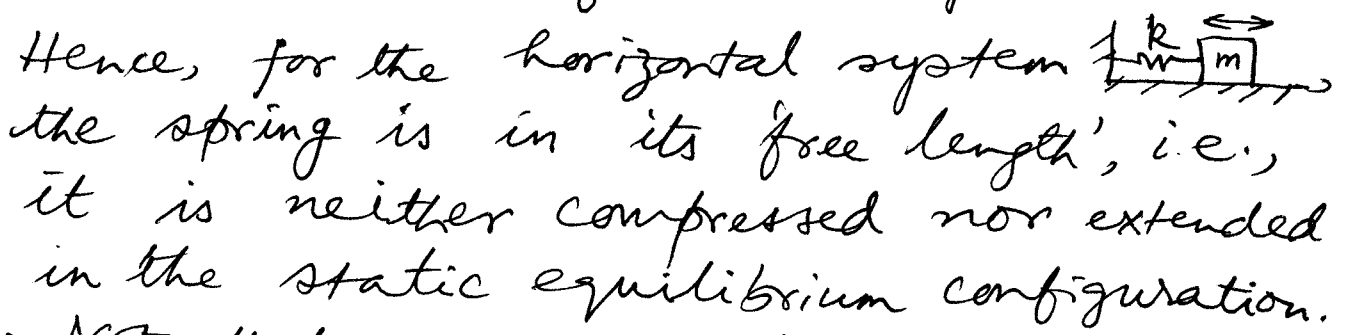 Hence, for the horizontal system k m,
the spring is in its 'free length', i.e.,
it is neither compressed nor extended
in the static equilibrium configuration.